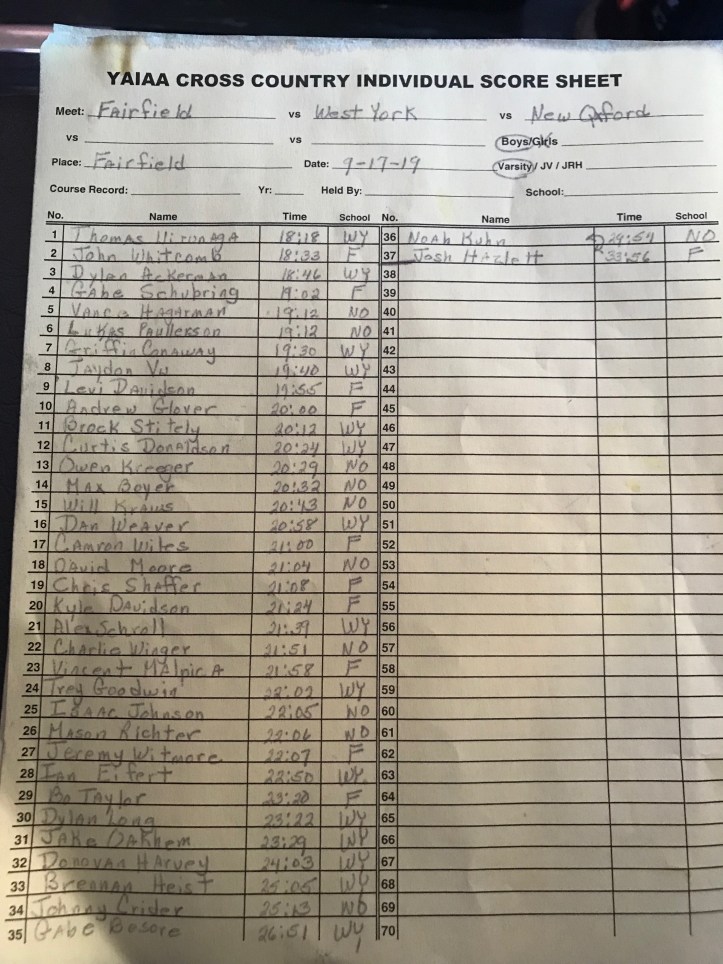 YAIAA CROSS COUNTRY INDIVIDUAL SCORE SHEET
Meet: Fairfield vs West York vs New Oxford
vs vs Boys/Girls
Place: Fairfield Date: 9-17-19 Varsity / JV / JRH
Course Record: Yr: Held By: School:
No. Name Time School No. Name Time School
1 Thomas 18:18 WY 36 Noah Kuhn 29:54 NO
2 John Whitcomb 18:33 F 37 Josh Hazlett 33:56 F
3 Dylan Ackerman 18:46 WY 38
4 Gabe Schubring 19:02 F 39
5 Vance Hagarman 19:12 NO 40
6 Lukas Paullerson 19:12 NO 41
7 Griffin Conaway 19:30 WY 42
8 Jaydon Vu 19:40 WY 43
9 Levi Davidson 19:55 F 44
10 Andrew Glover 20:00 F 45
11 Brock Stitely 20:12 WY 46
12 Curtis Donaldson 20:24 WY 47
13 Owen Kreeger 20:29 NO 48
14 Max Boyer 20:32 NO 49
15 Will Kraus 20:43 NO 50
16 Dan Weaver 20:58 WY 51
17 Camron Wiles 21:00 F 52
18 David Moore 21:04 NO 53
19 Chris Shaffer 21:08 F 54
20 Kyle Davidson 21:24 F 55
21 Alex Schroll 21:39 WY 56
22 Charlie Winger 21:51 NO 57
23 Vincent Malpica 21:58 F 58
24 Trey Goodwin 22:02 WY 59
25 Isaac Johnson 22:05 NO 60
26 Mason Richter 22:06 NO 61
27 Jeremy Witmore 22:07 F 62
28 Ian Eifert 22:50 WY 63
29 Bo Taylor 23:20 F 64
30 Dylan Long 23:22 WY 65
31 Jake Oakhem 23:29 WY 66
32 Donovan Harvey 24:03 WY 67
33 Brennan Heist 25:05 WY 68
34 Johnny Crider 25:13 NO 69
35 Gabe Bosore 26:51 WY 70